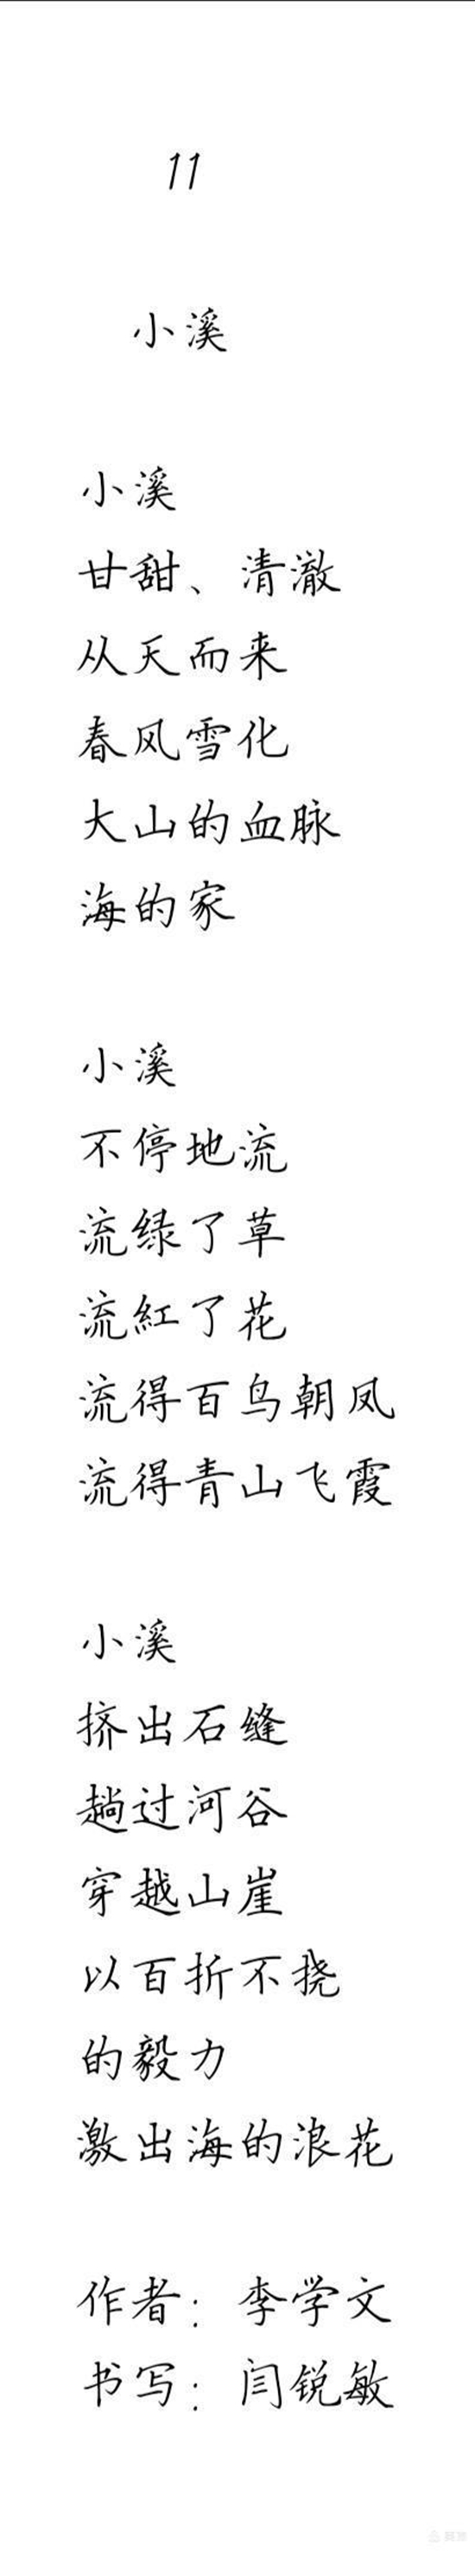 11
小溪
小溪
甘甜、清澈
从天而来
春风雪化
大山的血脉
海的家
小溪
不停地流
流绿了草
流紅了花
流得百鸟朝凤
流得青山飞霞
小溪
挤出石缝
趟过河谷
穿越山崖
以百折不挠
的毅力
激出海的浪花
作者：李学文
书写：闫锐敏